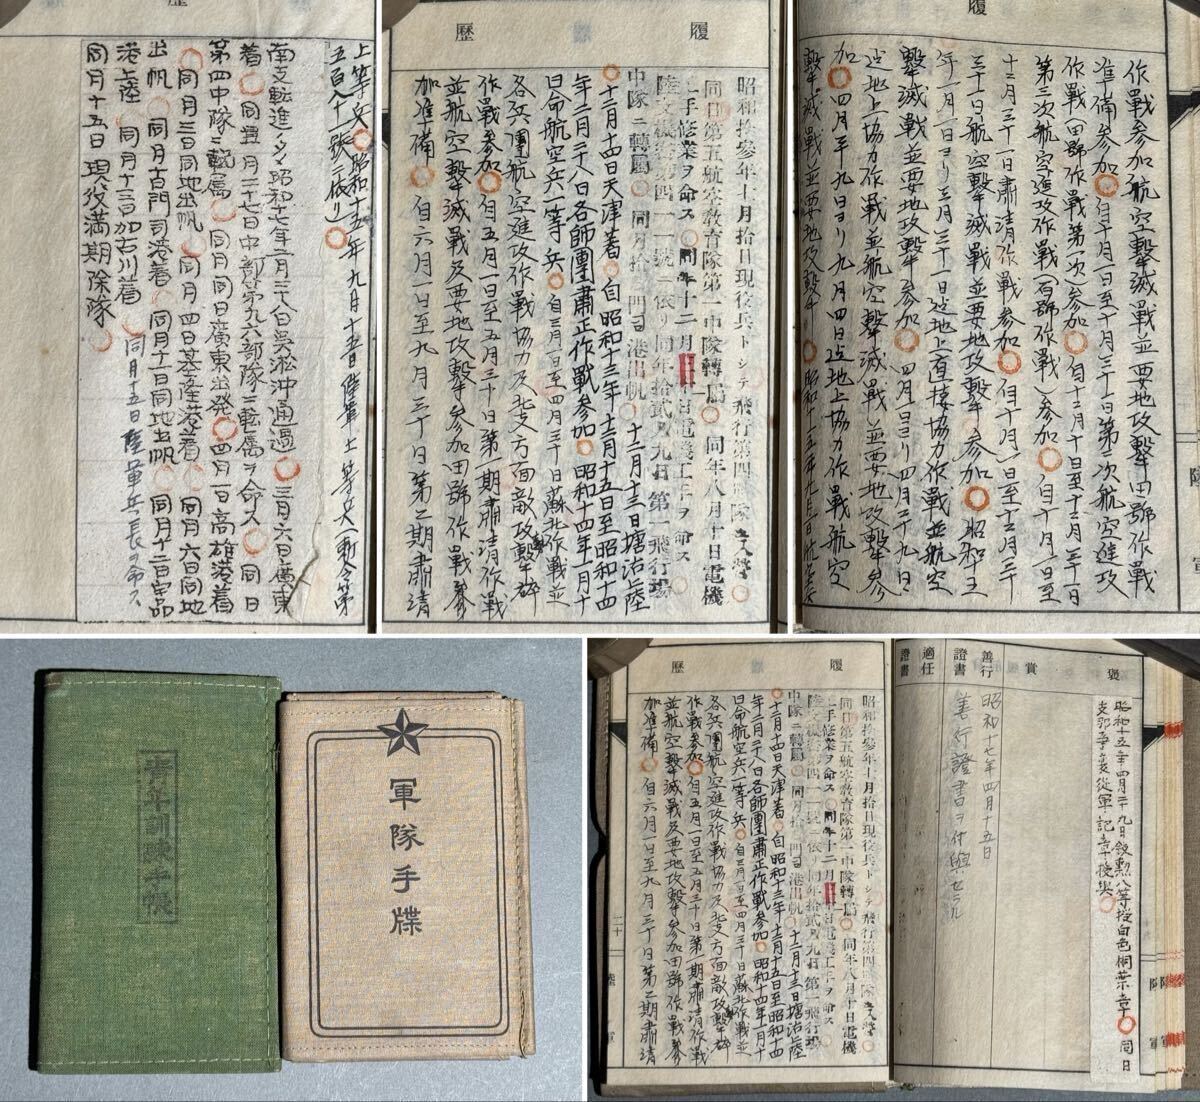 歴
上等兵
昭和十五年九月十五日陸軍上等兵
五百八十一號ニ依リ
南支転進ノタメ昭和十七年二月二十八日呉淞沖通過 三月六日廣東
着 同三月二十七日中部第九六部隊ニ転属ヲ命ス 同日
第四中隊ニ転属 同月同日廣東出発 四月一日高雄港着
同月三日同地出帆 同月四日基隆港着 同月六日同地
出帆 同月十日門司港着 同月十一日同地出帆 同月十二日宇品
港上陸 同月十三日加古川着 同月十五日陸軍兵長ヲ命ス
同月十五日現役満期除隊
履歴
昭和拾參年十月拾日現役兵トシテ飛行第四聯隊
同日第五航空教育隊第一中隊轉屬 同年八月十日電機
工手修業ヲ命ス 同年十二月 日電機工手ヲ命ス
陸支機密第四一一號ニ依リ同年拾貳月九日第一飛行場
中隊ニ轉屬 同月拾 日門司港出帆 十二月十三日塘沽上陸
十二月十四日天津著 自昭和十三年十二月十五日至昭和十四
年二月二十八日各師團肅正作戰参加 昭和十四年一月十
日命航空兵一等兵 自三月一日至四月三十日蘇北作戰並
各兵團航空進攻作戰協力及北支方面敵攻撃
作戰参加 自五月一日至五月三十日第一期肅清作戰
並航空撃滅戰及要地攻撃参加田號作戰参
加准備 自六月一日至九月三十日第二期肅清
履
作戰参加航空撃滅戰並要地攻撃田號作戰
准備参加 自十月一日至十月三十一日第二次航空進攻
作戰(田號作戰第一次)参加 自十二月十日至十二月三十一日
第三次航空進攻作戰(百號作戰)参加 自十月一日至
十二月三十一日肅清作戰参加 自十月一日至十二月三十
三十一日航空撃滅戰並要地攻撃参加 昭和十五
年一月一日ヨリ三月三十一日迄地上直接協力作戰並航空
撃滅戰並要地攻撃参加 四月一日ヨリ四月二十九日
迄地上協力作戰並航空撃滅戰並要地攻撃参
加 四月二十九日ヨリ九月四日迄地上協力作戰航空
撃滅戰並要地攻撃
青年訓練手帳
軍隊手牒
履歴
昭和拾參年十月拾日現役兵トシテ飛行第四聯隊
同日第五航空教育隊第一中隊轉屬 同年八月十日電機
工手修業ヲ命ス 同年十二月 日電機工手ヲ命ス
陸支機密第四一一號ニ依リ同年拾貳月九日第一飛行場
中隊ニ轉屬 同月拾 日門司港出帆 十二月十三日塘沽上陸
十二月十四日天津著 自昭和十三年十二月十五日至昭和十四
年二月二十八日各師團肅正作戰参加 昭和十四年一月十
日命航空兵一等兵 自三月一日至四月三十日蘇北作戰並
各兵團航空進攻作戰協力及北支方面敵攻撃
作戰参加 自五月一日至五月三十日第一期肅清作戰
並航空撃滅戰及要地攻撃参加田號作戰参
加准備 自六月一日至九月三十日第二期肅清
褒賞
昭和十五年四月二十九日敍勲八等授白色桐葉章 同日
支那事変従軍記章授與
善行證書
昭和十七年四月十五日
善行證書ヲ付與セラル
適任證書
二十
陸軍